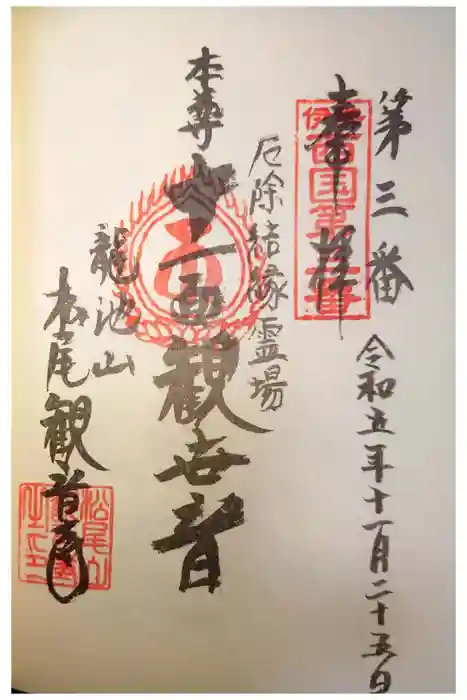 第三番
令和五年十一月二十五日
奉拝
西国第三番
厄除結縁霊場
本尊
十一面観世音
龍池山
松尾観音寺